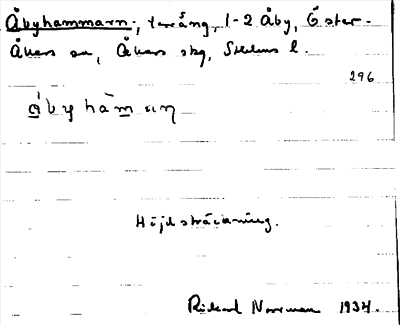 Åbyhammarn, terräng, 1-2 Åby, Öster-
Åkers sn, Åkers skg, Sthlms l.
296
åbyhàmaɳ
Höjdsträckning.
Rickard Norrman 1934.